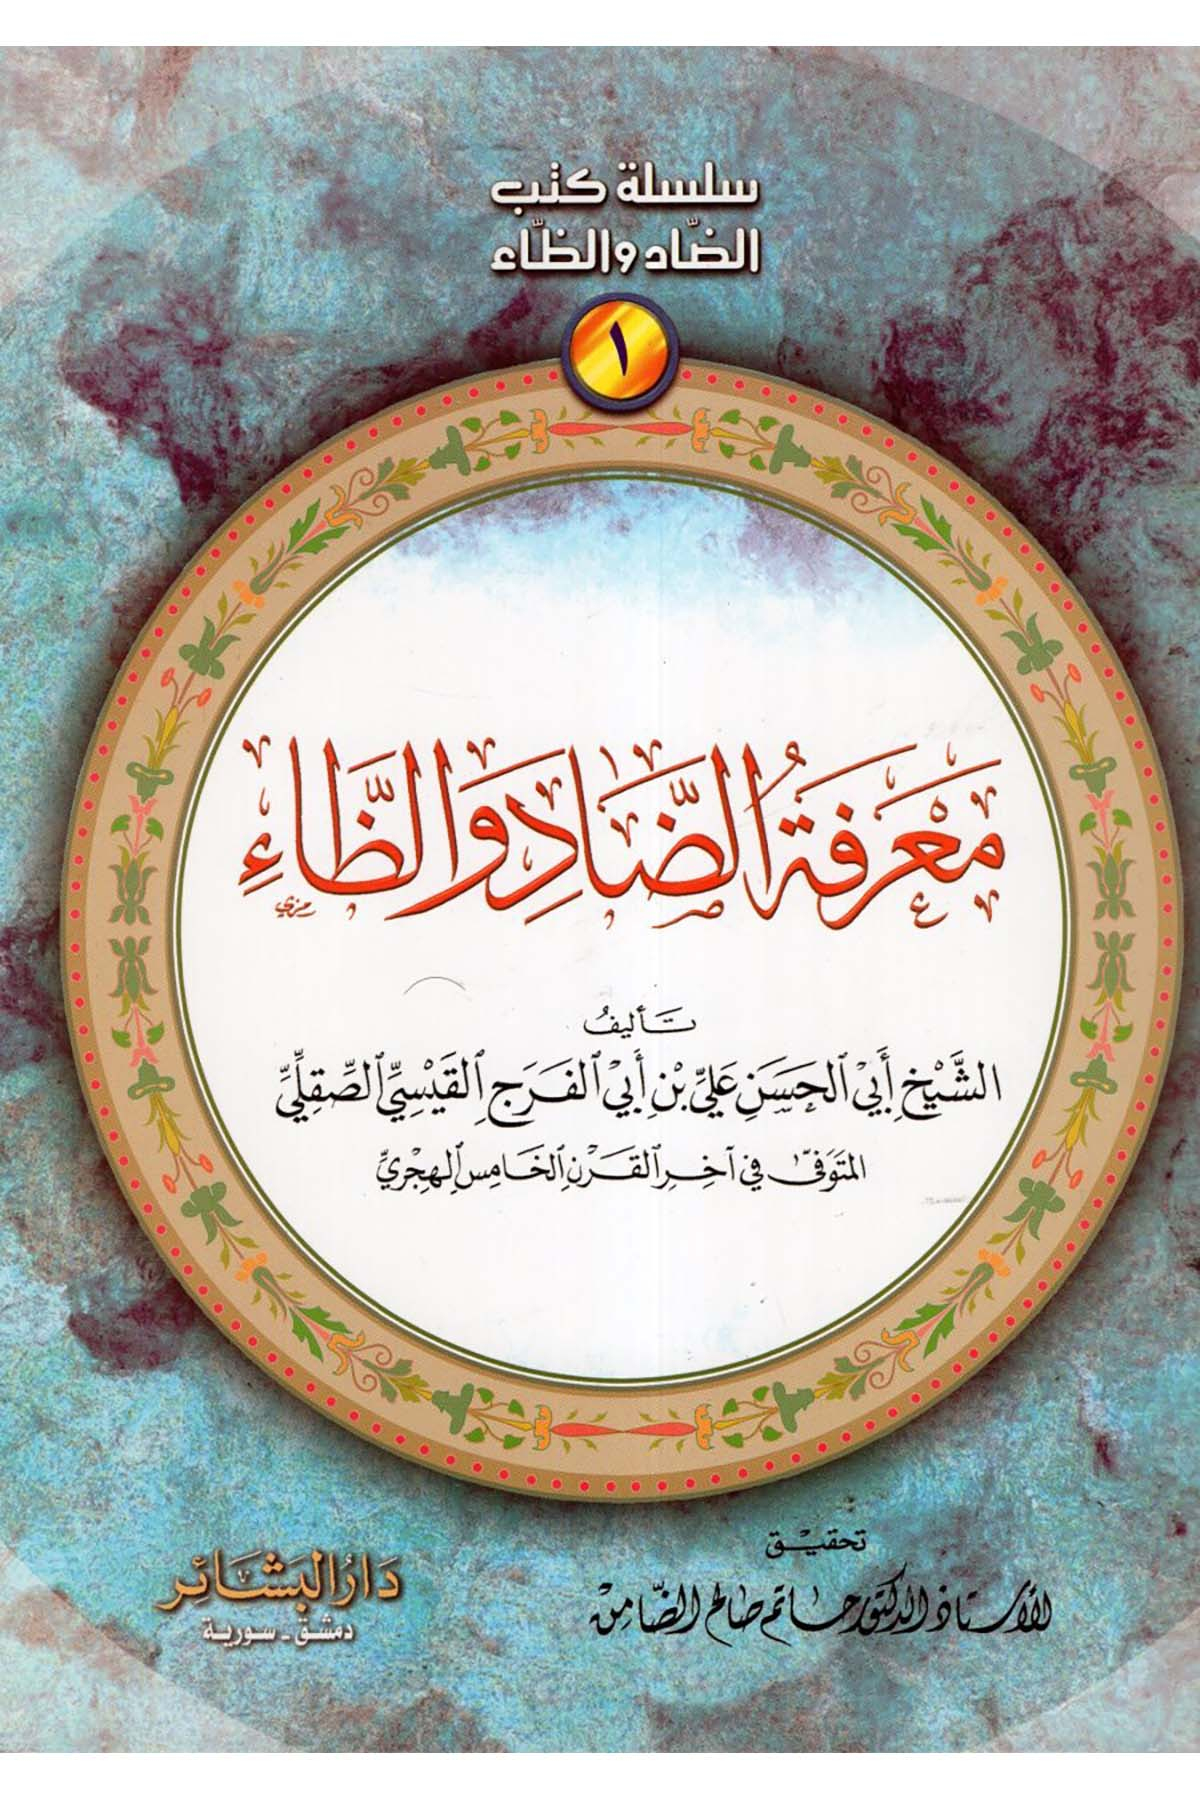 سلسلة كتب
الضّاد والظّاء
١
مَعْرَفَةُ الضَّادِ وَالظَّاءِ
تأليفُ
الشَّيْخِ أَبِي الحَسَنِ عَلِيِّ بْنِ أَبِي الفَرَجِ القَيْسِيِّ الصِّقِلِّيِّ
المتوفّىٰ في آخِرِ القَرْنِ الخَامِسِ الهِجْرِيِّ
تحقيق
الأستاذ الدكتور حاتم صالح الضّامن
دَارُ البَشَائِر
دمشق - سورية